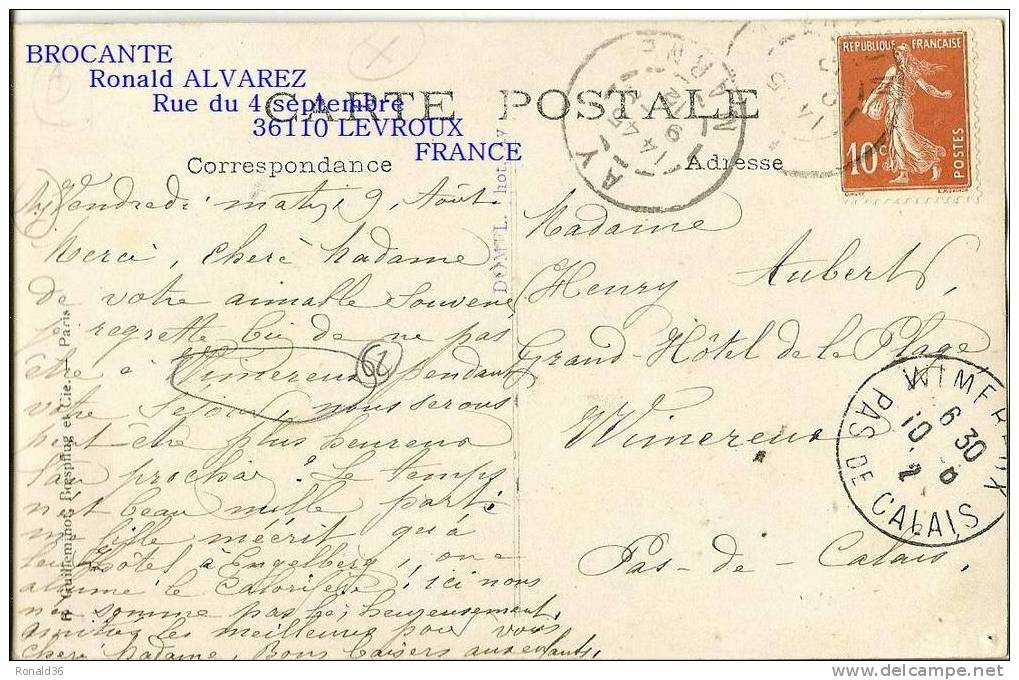 BROCANTE
Ronald ALVAREZ
Rue du 4 septembre
36110 LEVROUX
FRANCE
CARTE POSTALE
Correspondance
Adresse
REPUBLIQUE FRANCAISE
10c
POSTES
AY
MARNE
14 45
9
Vendredi matin 9 Août.
Merci, cherè Madame
de votre aimable Souvenir
regrette de ne pas
être à Wimereux pendant
62
votre Sejour, nous serons
peut-être plus heureux
l'an prochain? Le temps
n'est beau nulle part
ma fille m'écrit qu'à
leur Hôtel à Engelberg, on a
allumé le Calorifère, ici nous
somme pas là, heureusement
amitiés les meilleures pour vous
cherè Madame, Bons baisers aux enfants,
Madame
Henry Aubert,
Grand-Hôtel de la Plage
Wimereux
Pas-de-Calais,
WIMEREUX
6 30
10
PAS DE CALAIS
Guilleminot, Bœspflug et Cie. — Paris
Ronald36
www.delcampe.net